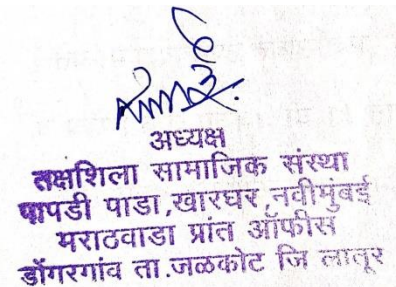 अध्यक्ष
तक्षशिला सामाजिक संस्था
पापडी पाडा,खारघर,नवीमुंबई
मराठवाडा प्रांत ऑफीस
डोंगरगांव ता.जळकोट जि लातूर